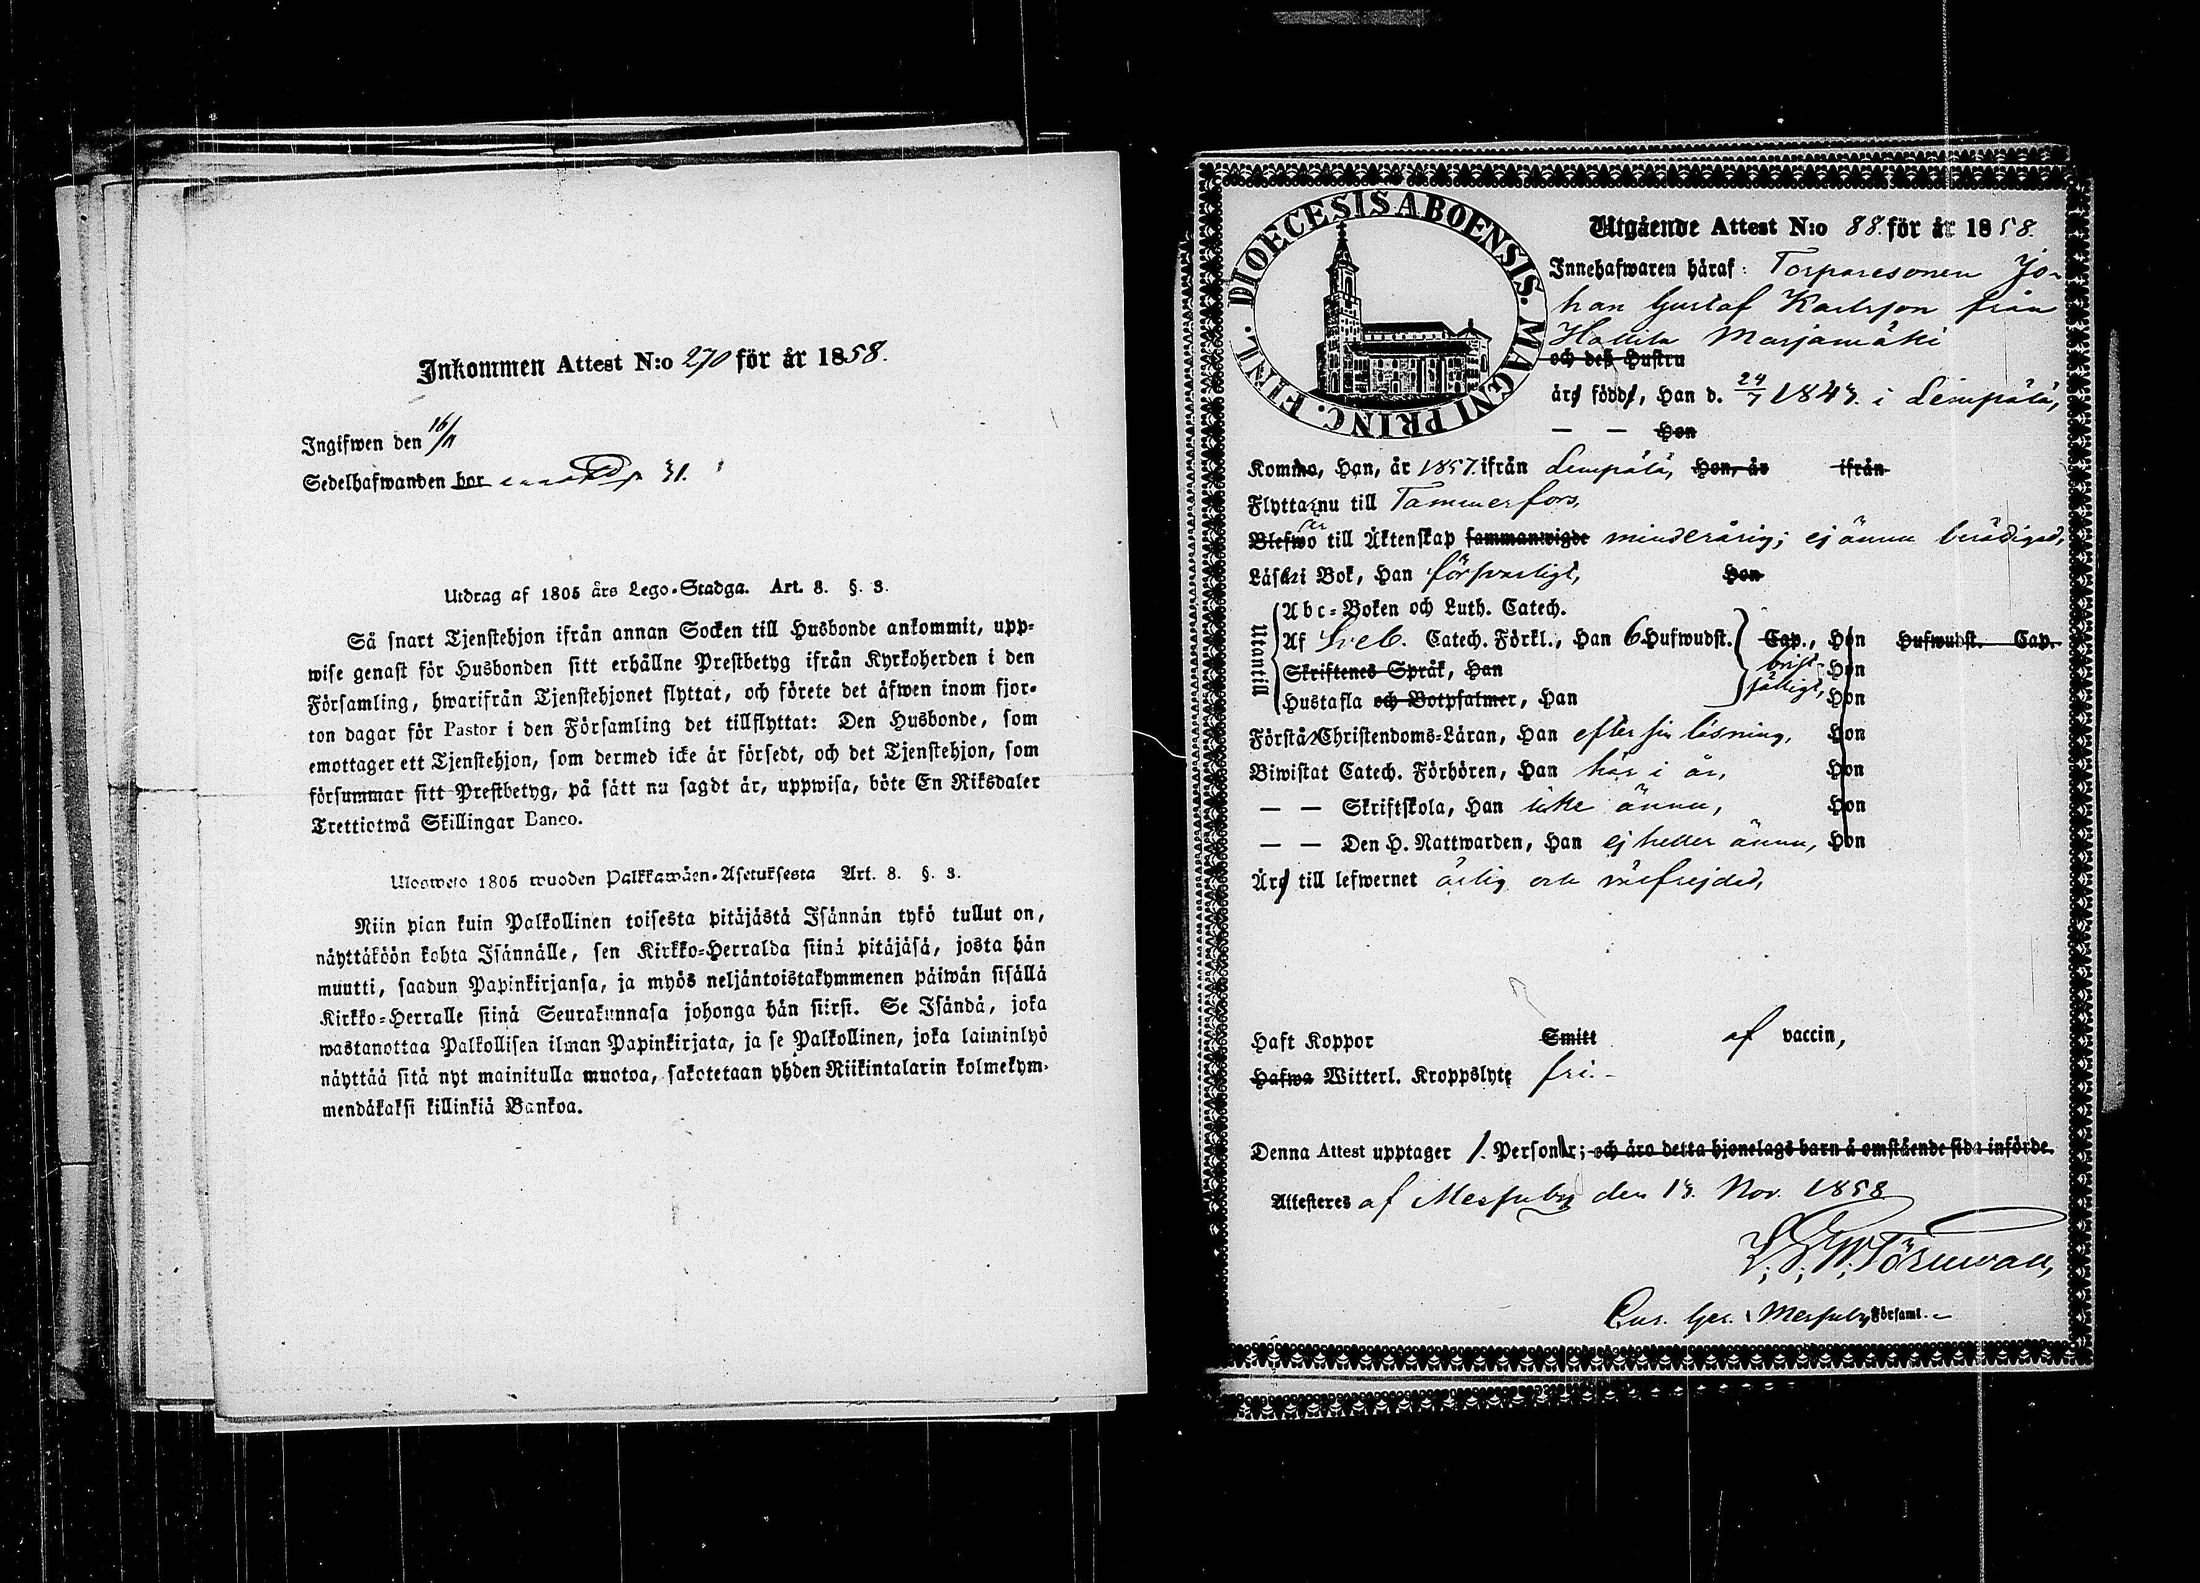 Inkommen Attest N:o 270 för år 1858.
Ingifwen den 16/11
Sedelhafwanden bor 31.
Utdrag af 1805 års Lego-Stadga. Art. 8. §. 3.
Så snart Tjenstehjon ifrån annan Socken till Husbonde ankommit, upp-
wise genast för Husbonden sitt erhållne Prestbetyg ifrån Kyrkoherden i den
Församling, hwarifrån Tjenstehjonet flyttat, och förete det äfwen inom fjor-
ton dagar för Pastor i den Församling det tillflyttat: Den Husbonde, som
emottager ett Tjenstehjon, som dermed icke är försedt, och det Tjenstehjon, som
försummar sitt Prestbetyg, på sätt nu sagdt är, uppwisa, böte En Riksdaler
Trettiotwå Skillingar Banco.
Ulosweto 1805 wuoden Palkkawäen-Asetuksesta Art. 8. §. 3.
Niin pian kuin Palkollinen toisesta pitäjästä Isännän tykö tullut on,
näyttäköön kohta Isännälle, sen Kirkko-Herralda siinä pitäjäsä, josta hän
muutti, saadun Papinkirjansa, ja myös neljäntoistakymmenen päiwän sisällä
Kirkko-Herralle siinä Seurakunnasa johonga hän siirsi. Se Isändä, joka
wastanottaa Palkollisen ilman Papinkirjata, ja se Palkollinen, joka laiminlyö
näyttää sitä nyt mainitulla muotoa, sakotetaan yhden Riikintalarin kolmekym-
mendäkaksi killinkiä Bankoa.
DIOECESIS ABOENSIS. MAGNI PRINC. FINL.
Utgående Attest N:o 88. för år 1858.
Innehafwaren häraf: Torparesonen Jo-
han Gustaf Karlsson från
Hallila Marjamäki
och deß Hustru
äro födde, Han d. 24/7 1843. i Lempälä,
— — Hon
Komne, Han, år 1857. ifrån Lempälä, Hon, år ifrån
Flyttar nu till Tammerfors,
Blefwo är till Äktenskap sammanwigde minderårig; ej ännu berättigad,
Läser i Bok, Han försvarligt, Hon
Utantill
Abc-Boken och Luth. Catech.
Af Sveb. Catech. Förkl., Han 6 Hufwudst. Cap., Hon Hufwudst. Cap.
Skriftenes Språk, Han brist- Hon
Hustafla och Botpsalmer, Han fälligt, Hon
Förstår Christendoms-Läran, Han efter sin läsning, Hon
Biwistat Catech. Förhören, Han här i år, Hon
— — Skriftskola, Han icke ännu, Hon
— — Den H. Nattwarden, Han ej heller ännu, Hon
Äro till lefwernet ärlig och välfrejdad,
Haft Koppor Smitt af vaccin,
Hafwa Witterl. Kroppslyte fri.-
Denna Attest upptager 1. Person; och äro detta hjonelags barn å omstående sida införde.
Attesteras af Messuby den 13. Nov. 1858
Törnwall,
Messuby Församl.